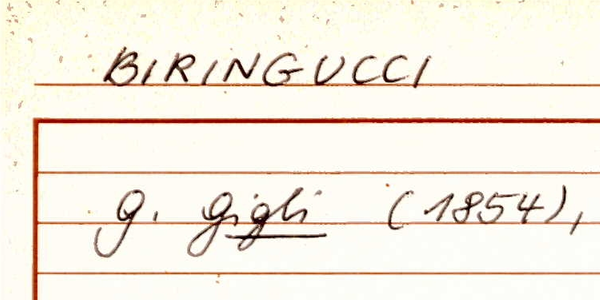 BIRINGUCCI
G. Gigli (1854),